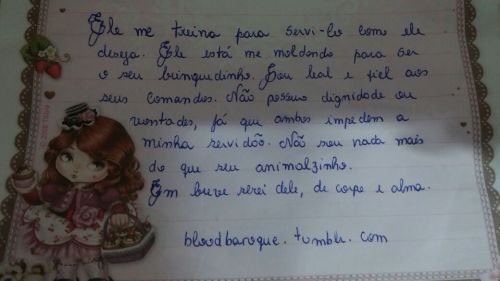 Ele me treina para servi-lo como ele
deseja. Ele está me moldando para ser
o seu brinquedinho. Sou leal e fiel aos
seus comandos. Não possuo dignidade ou
vontades, já que ambos impedem a
minha servidão. Não sou nada mais
do que seu animalzinho.
Em breve serei dele, de corpo e alma.
bloodbaroque.tumblr.com